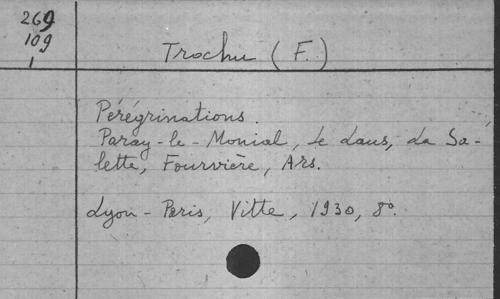 269
109
1
Trochu (F.)
Pérégrinations.
Paray-le-Monial, Le Laus, La Sa-
lette, Fourvière, Ars.
Lyon-Paris, Vitte, 1930, 8º.